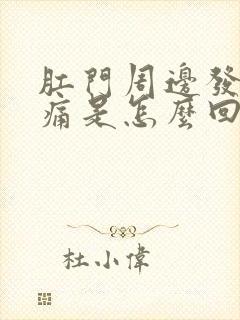 肛門周邊發
痛是怎麼回
杜小偉